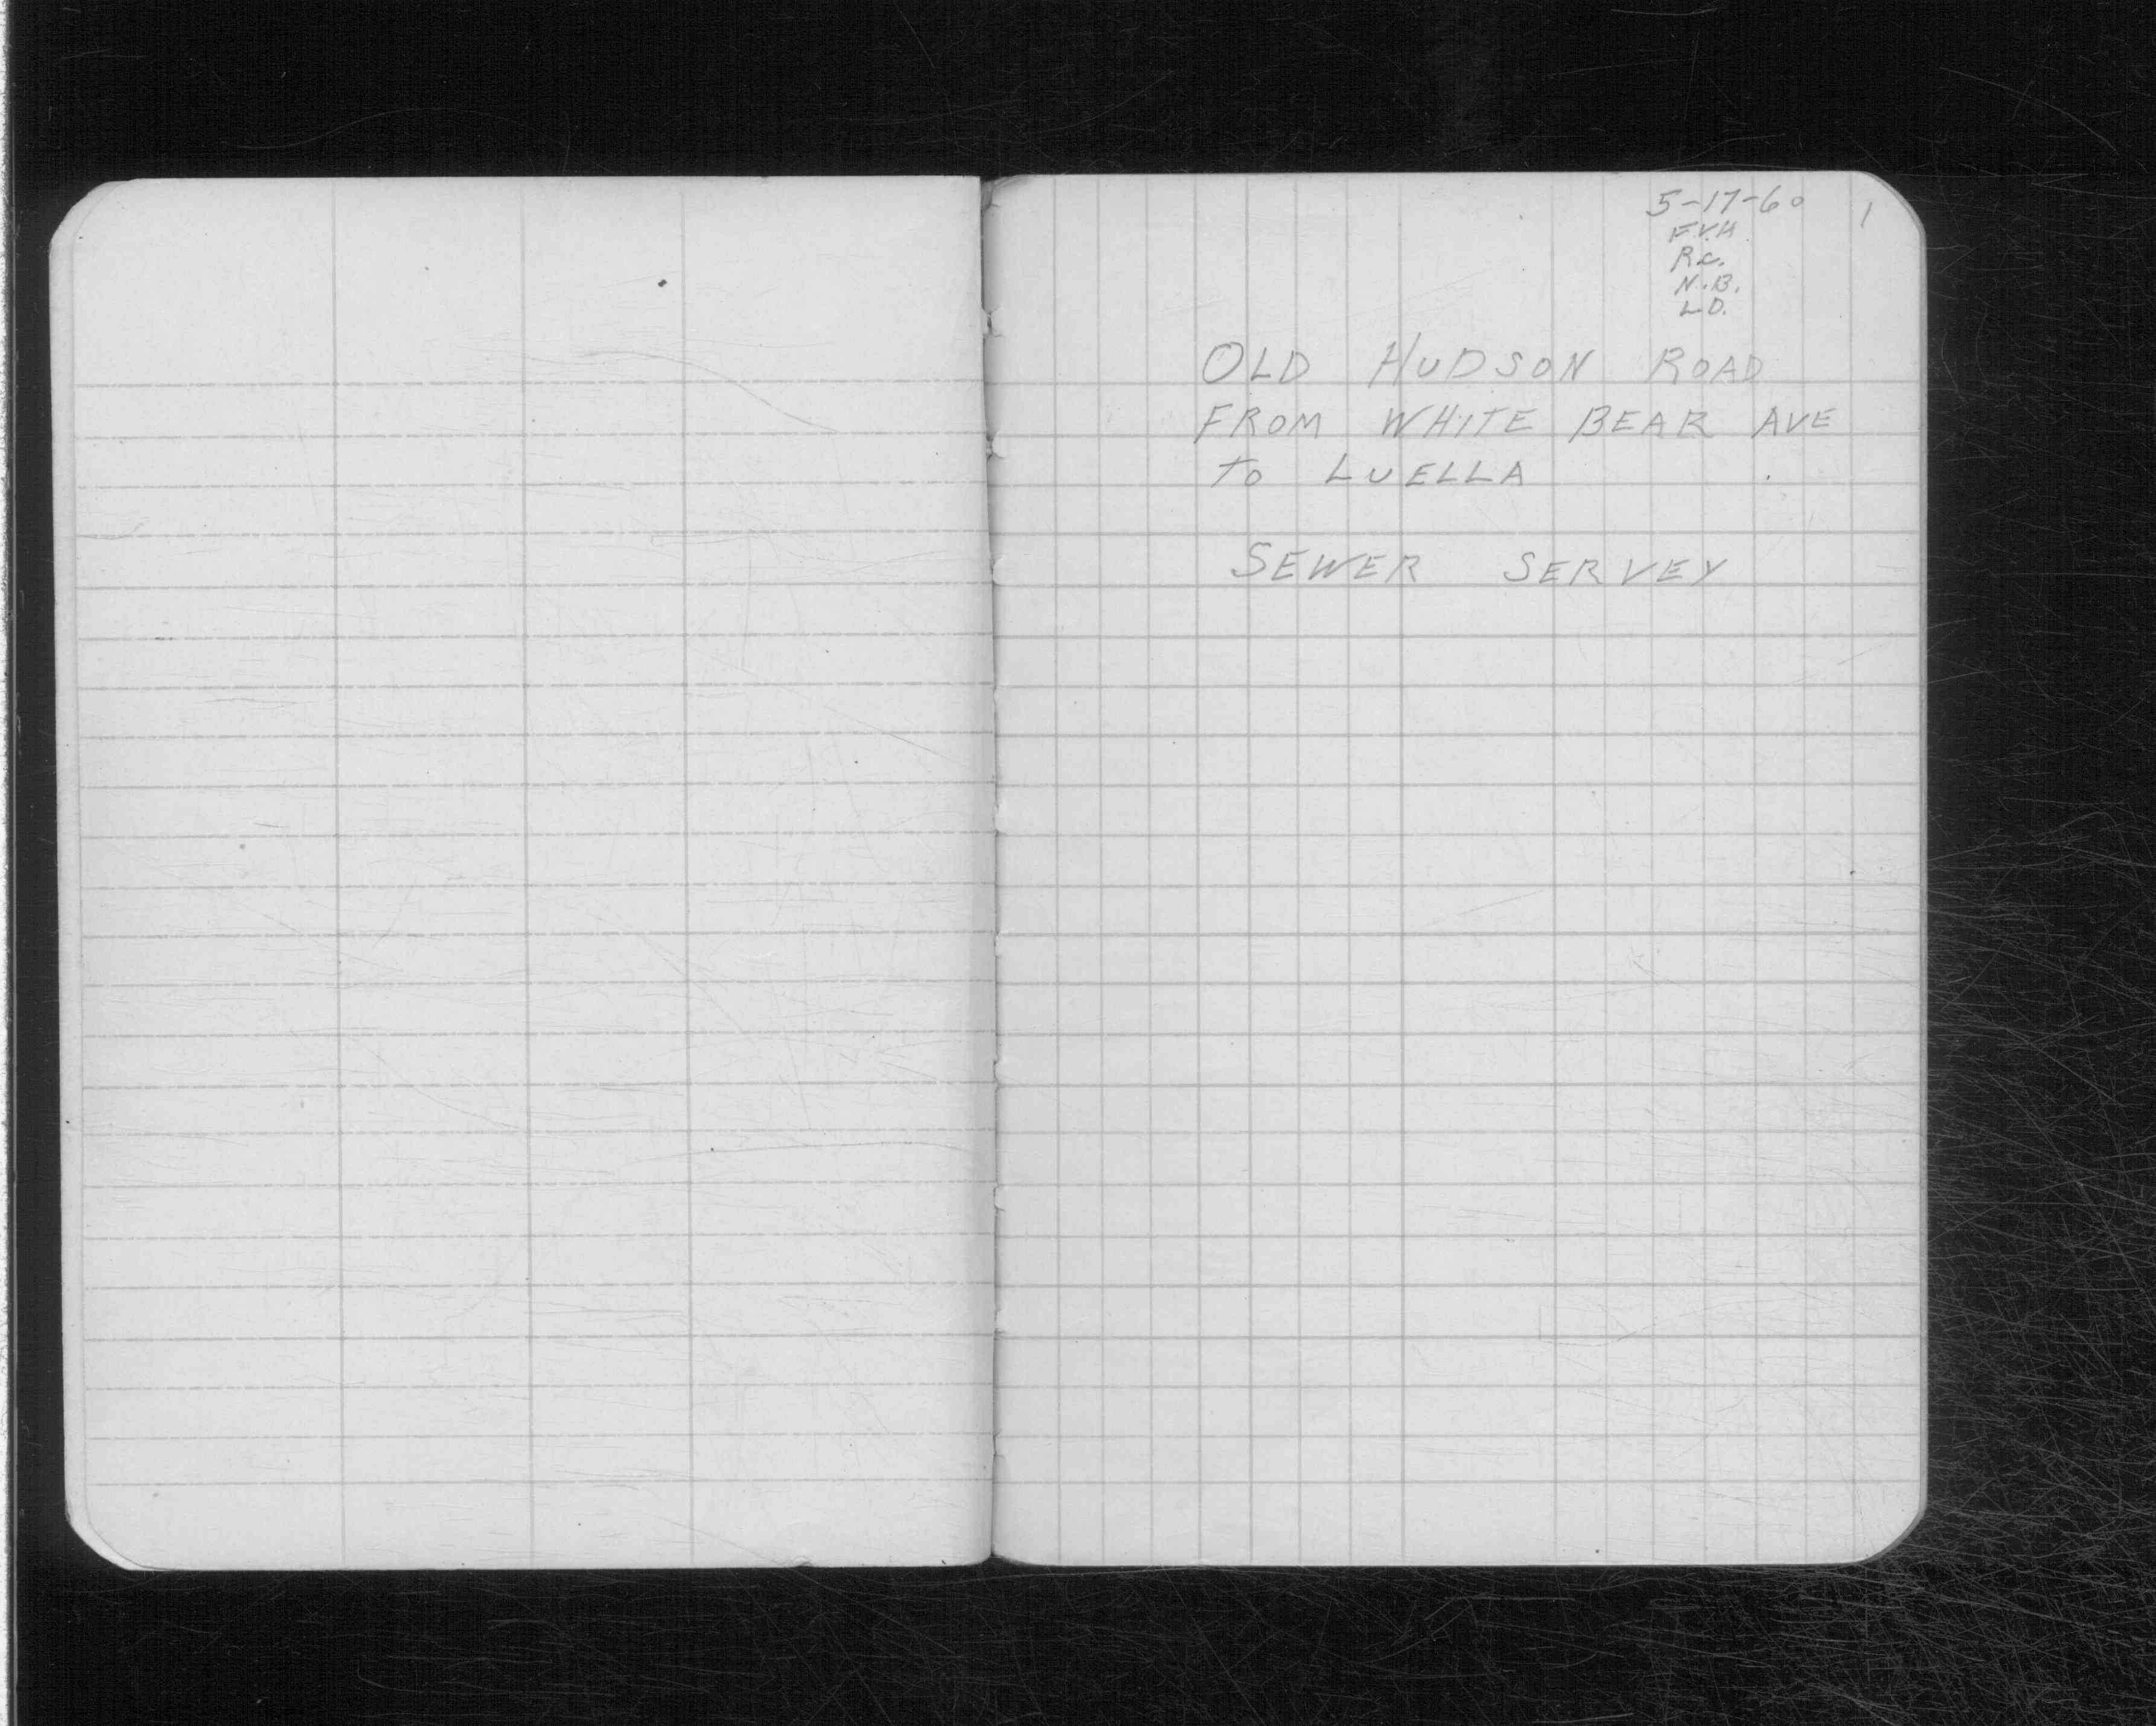 5-17-60 1
F.V.H.
R.C.
N.B.
L.D.
OLD HUDSON ROAD
FROM WHITE BEAR AVE
TO LUELLA
SEWER SERVEY